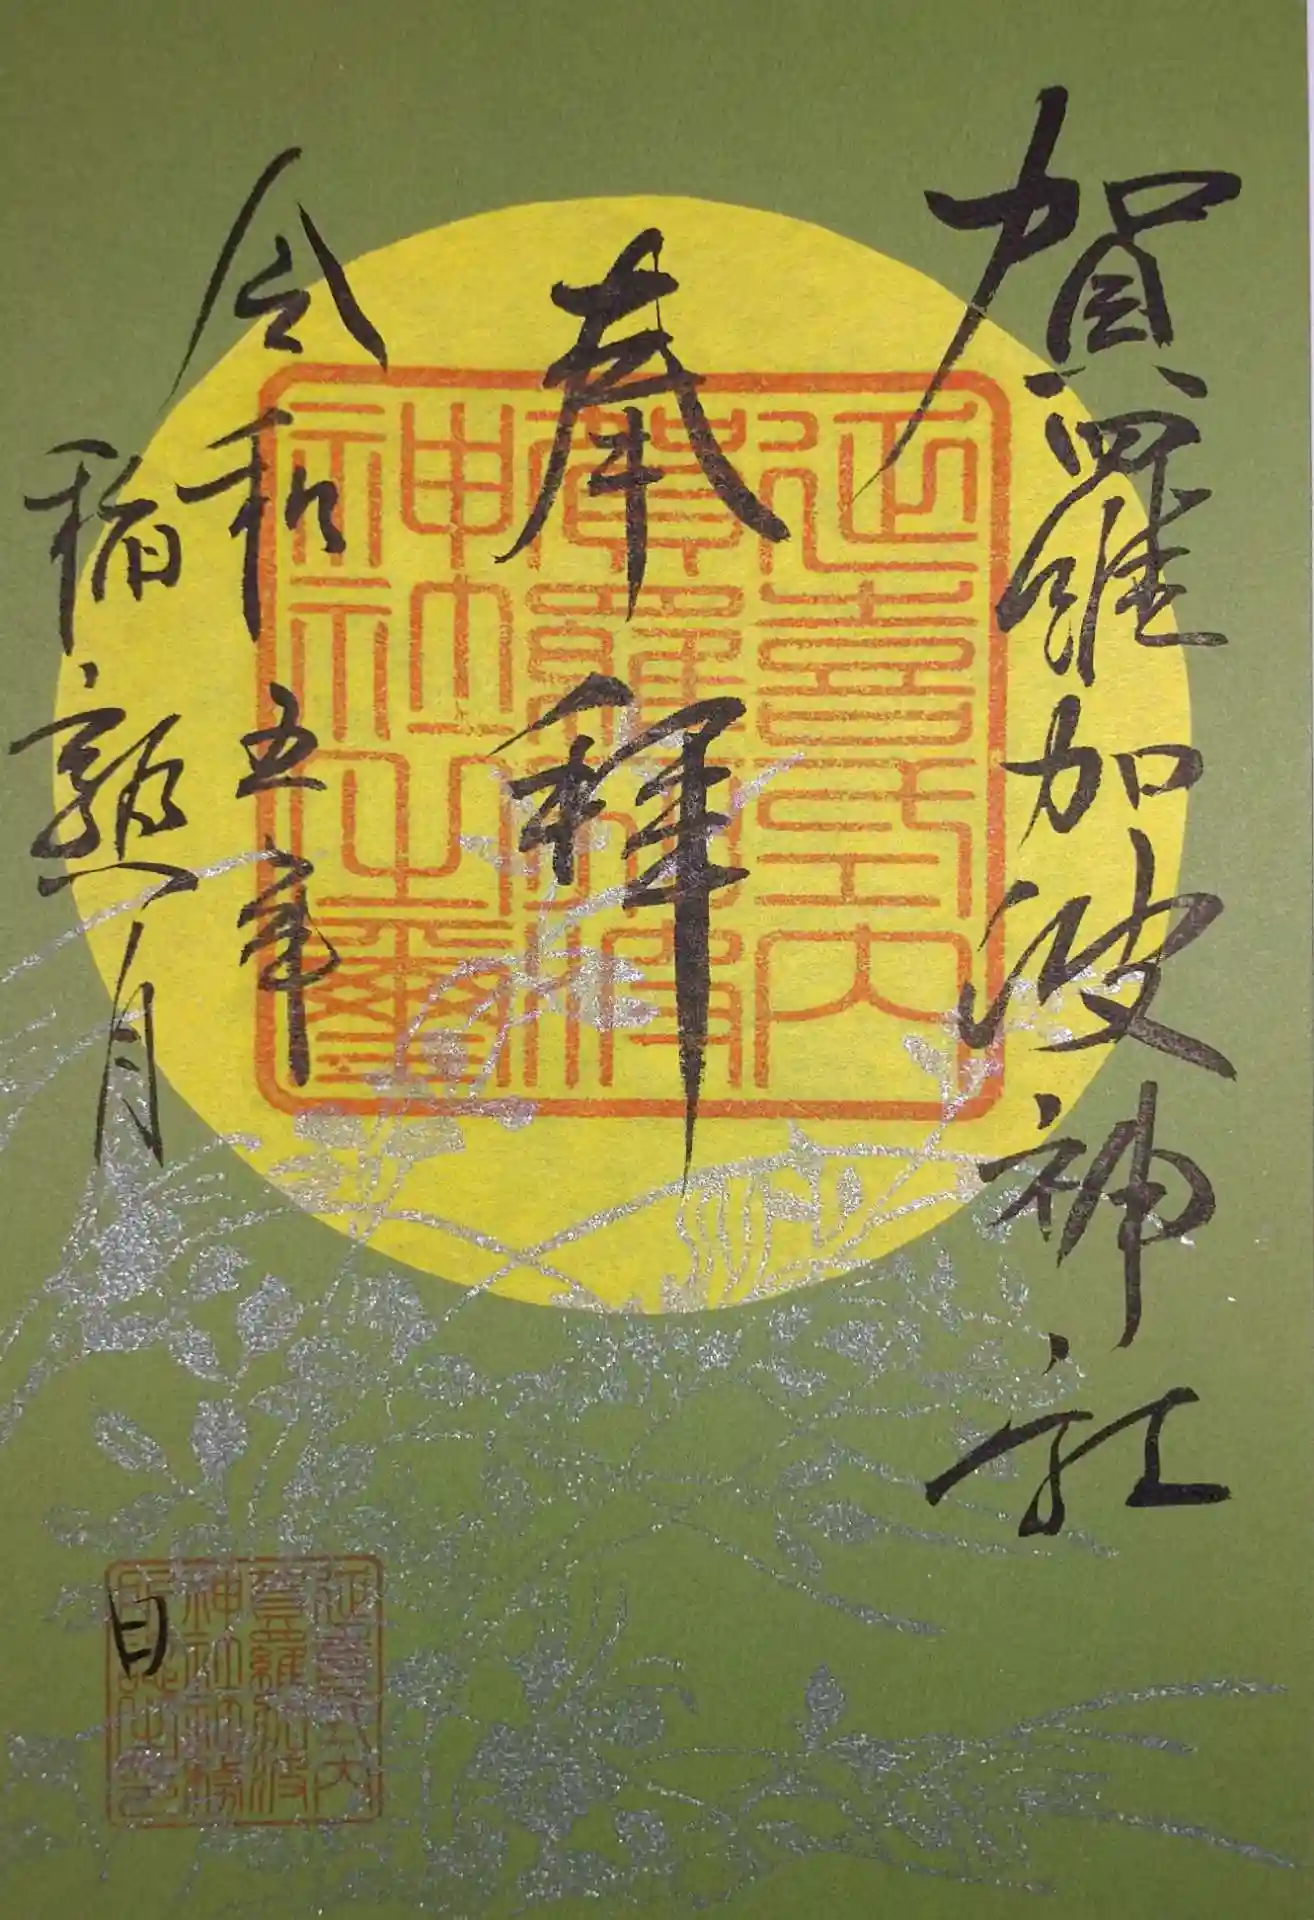 賀羅加波神社
奉拝
令和五年
稲熟月
日
延喜式内
賀羅加波
神社之璽
延喜式内
賀羅加波
神社社務
所之印